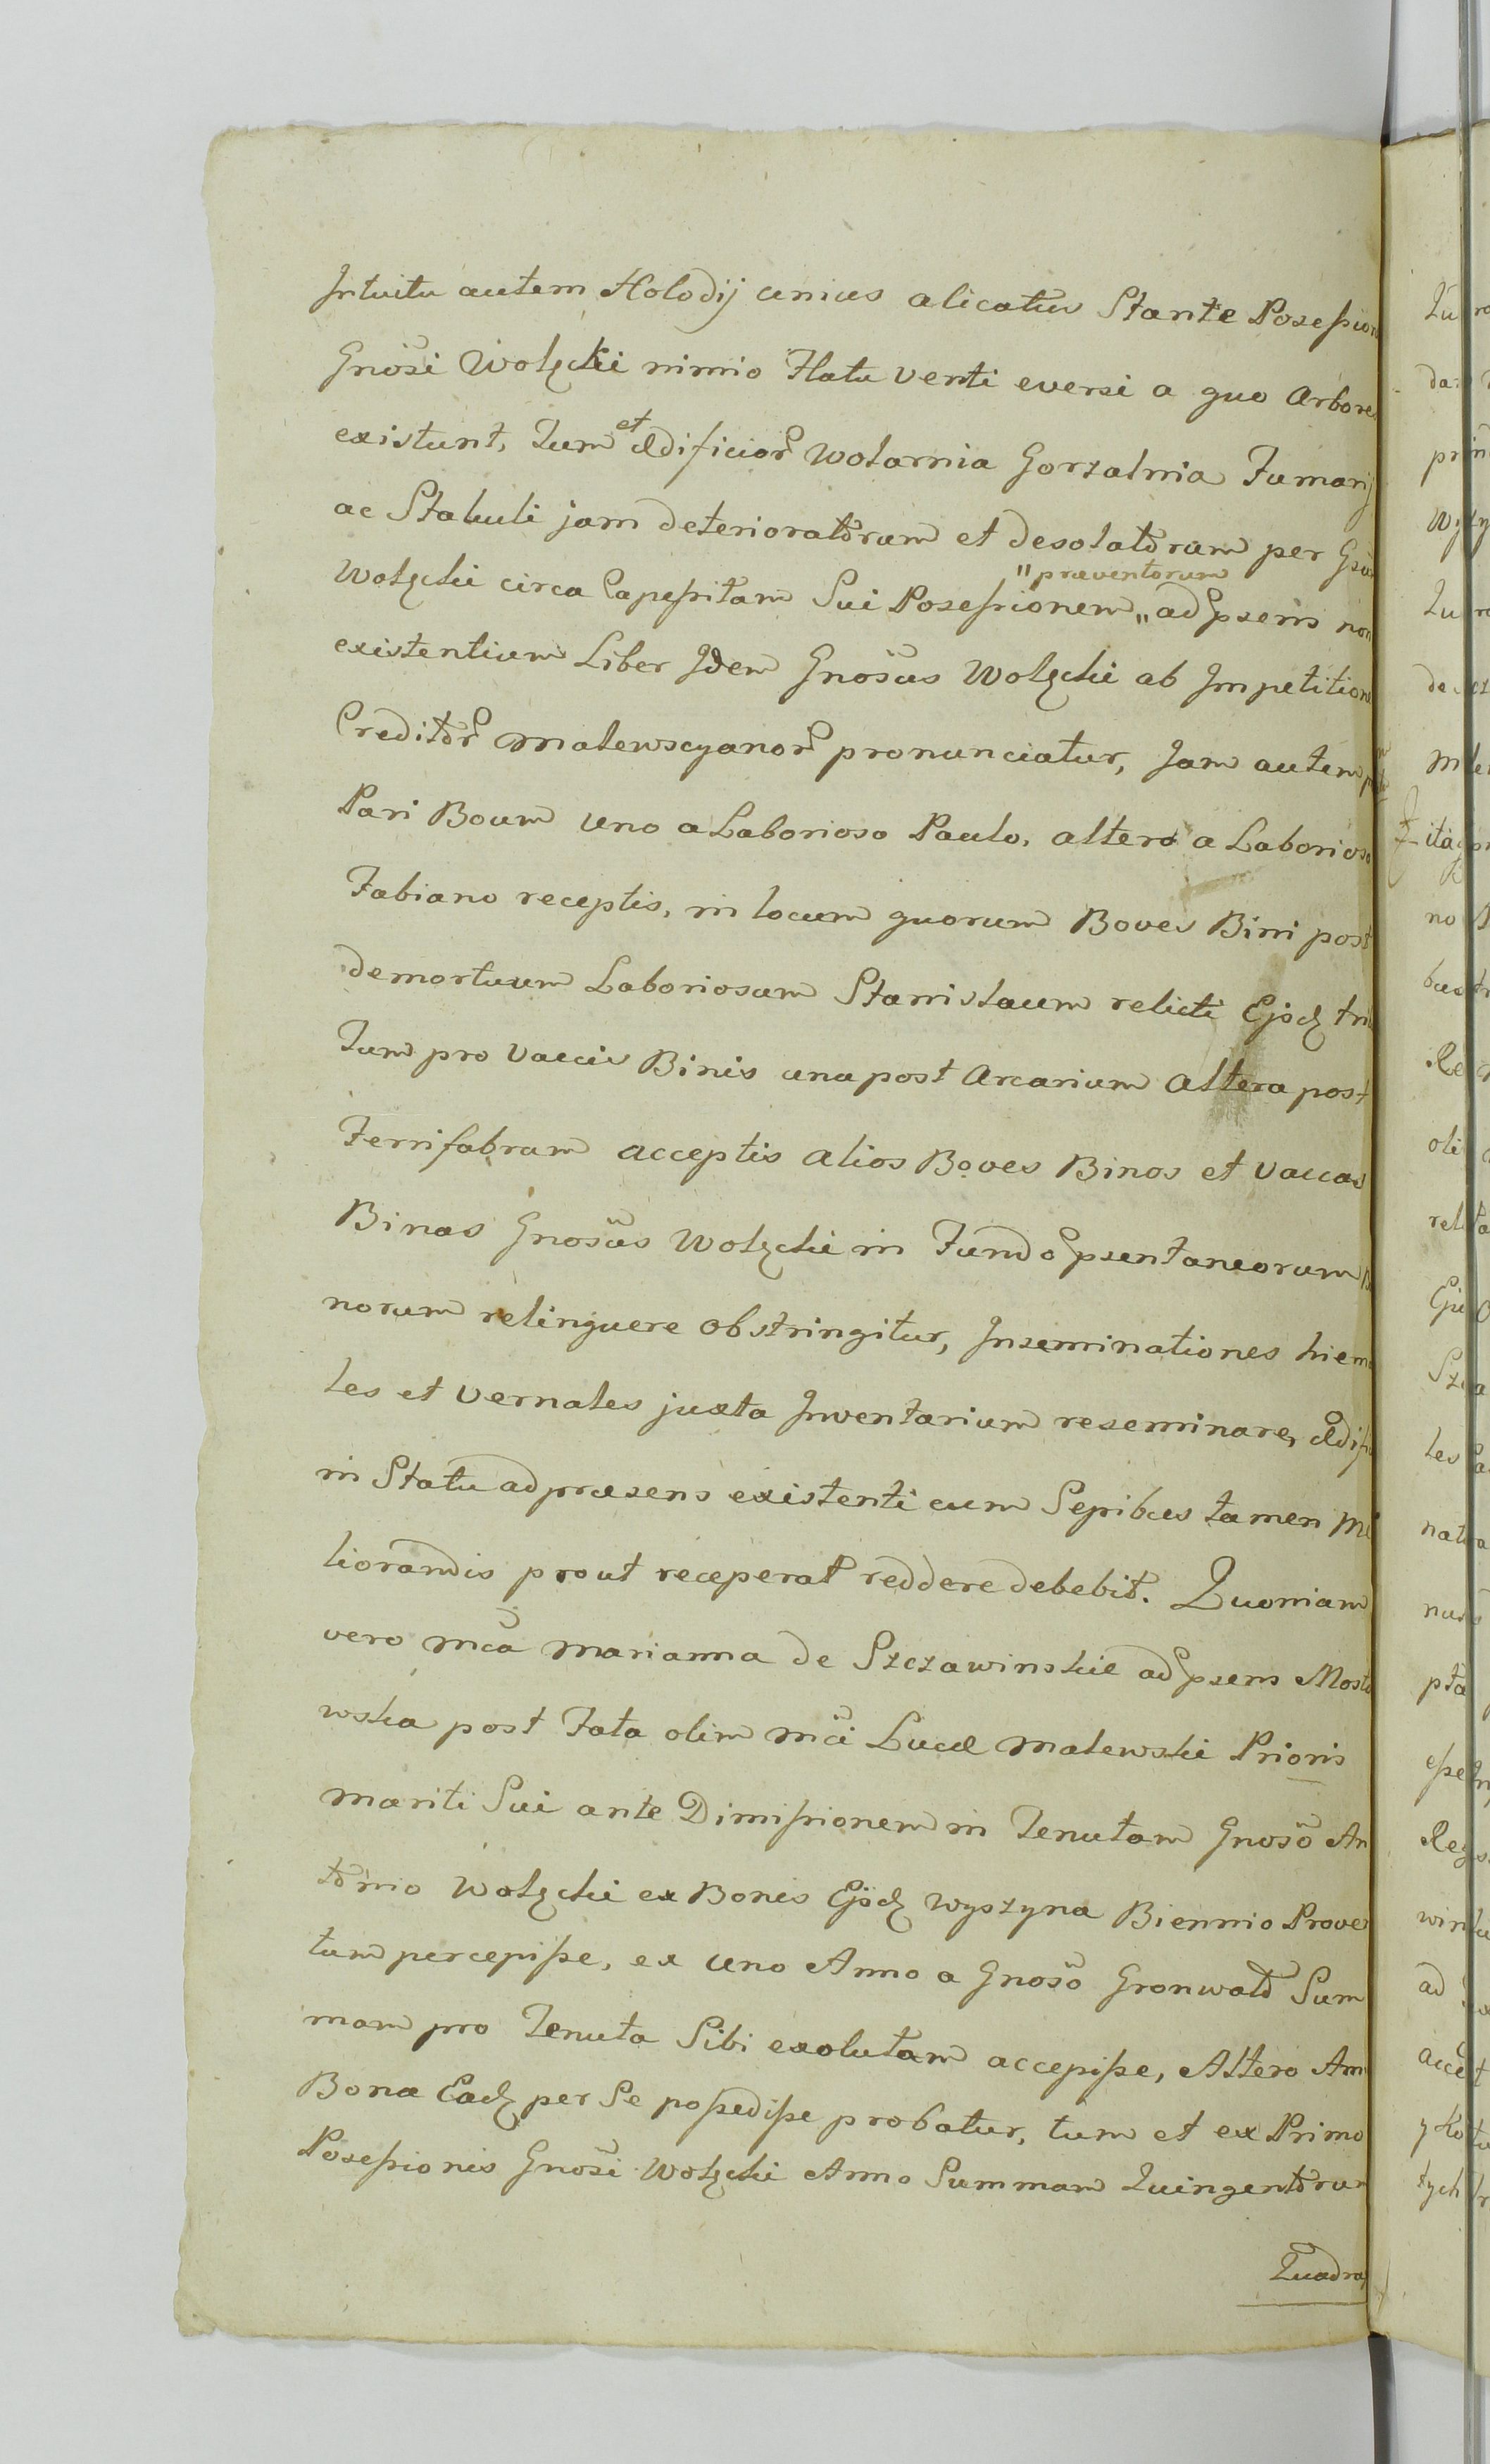 Intuitu autem Molodij unius alicatus Stante Posession
Gnosi Wolęcki nimio Flatu venti eversi a quo Arbores
existunt, Tum et Ædificior Wolarnia Gorzalnia Fumarij
ac Stabuli jam deterioratorum et desolatorum per Gsum
Wolęcki circa Capessitam Sui Posessionem „ad psens non
"præventorum
existentium Liber Idem Gnosus Wolęcki ab Impetitione
Creditor Malewscyanor pronunciatur, Jam autem
Pari Boum uno a Laborioso Paulo, altero a Laborioso
Fabiano receptis, in locum quorum Boves Bini post
demortuum Laboriosum Stanislaum relicti Ejsdę
Tum pro Vaccis Binis una post Arcarium Altera post
Ferrifabrum acceptis alios Boves Binos et Vaccas
Binas Gnosus Wolęcki in Fundo psentaneorum
norum relinquere obstringitur, Inseminationes hiema
les et Vernales juxta Inventarium reseminare, Ædif
in Statu ad præsens existenti cum Sepibus tamen Me
liorandis prout receperat reddere debebit. Quoniam
vero Mca Marianna de Szczawinskie ad psens Mosto
wska post Fata olim Mci Lucæ Malewski Prioris
mariti Sui ante Dimissionem in Tenutam Gnoso An
tonio Wolęcki ex Bonis Ejsdę Wyszyna Biennio Proven
tum percepisse, ex uno Anno a Gnoso Gronwald Sum
mam pro Tenuta Sibi exolutam accepisse, Altero Ann
Bona Eadę per Se possedisse probatur, tum et ex Primo
Posessionis Gnosi Wolęcki Anno Summam Quingentorum
Quadra